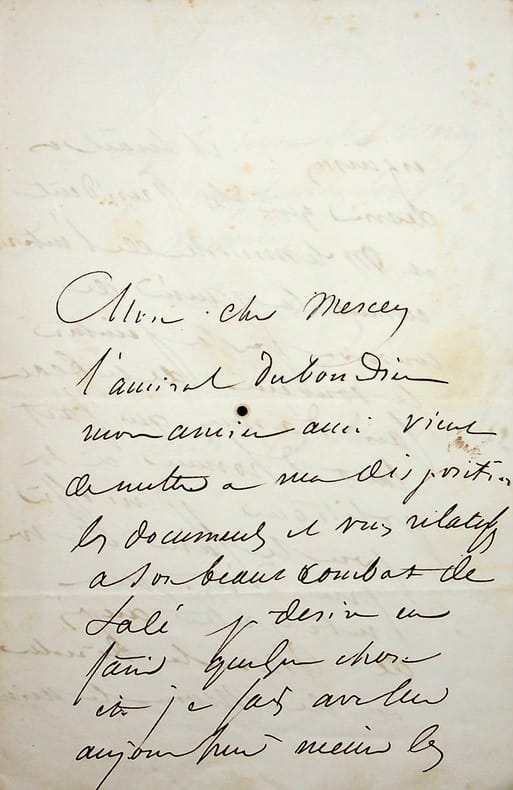 Mon cher Mercey
l'amiral dubourdieu
mon ancien ami vient
de mettre a ma disposition
les documents et vues relatifs
a son beau combat de
Salé je desire en
faire quelque chose
et je fais avec lui
aujourd'hui meme les